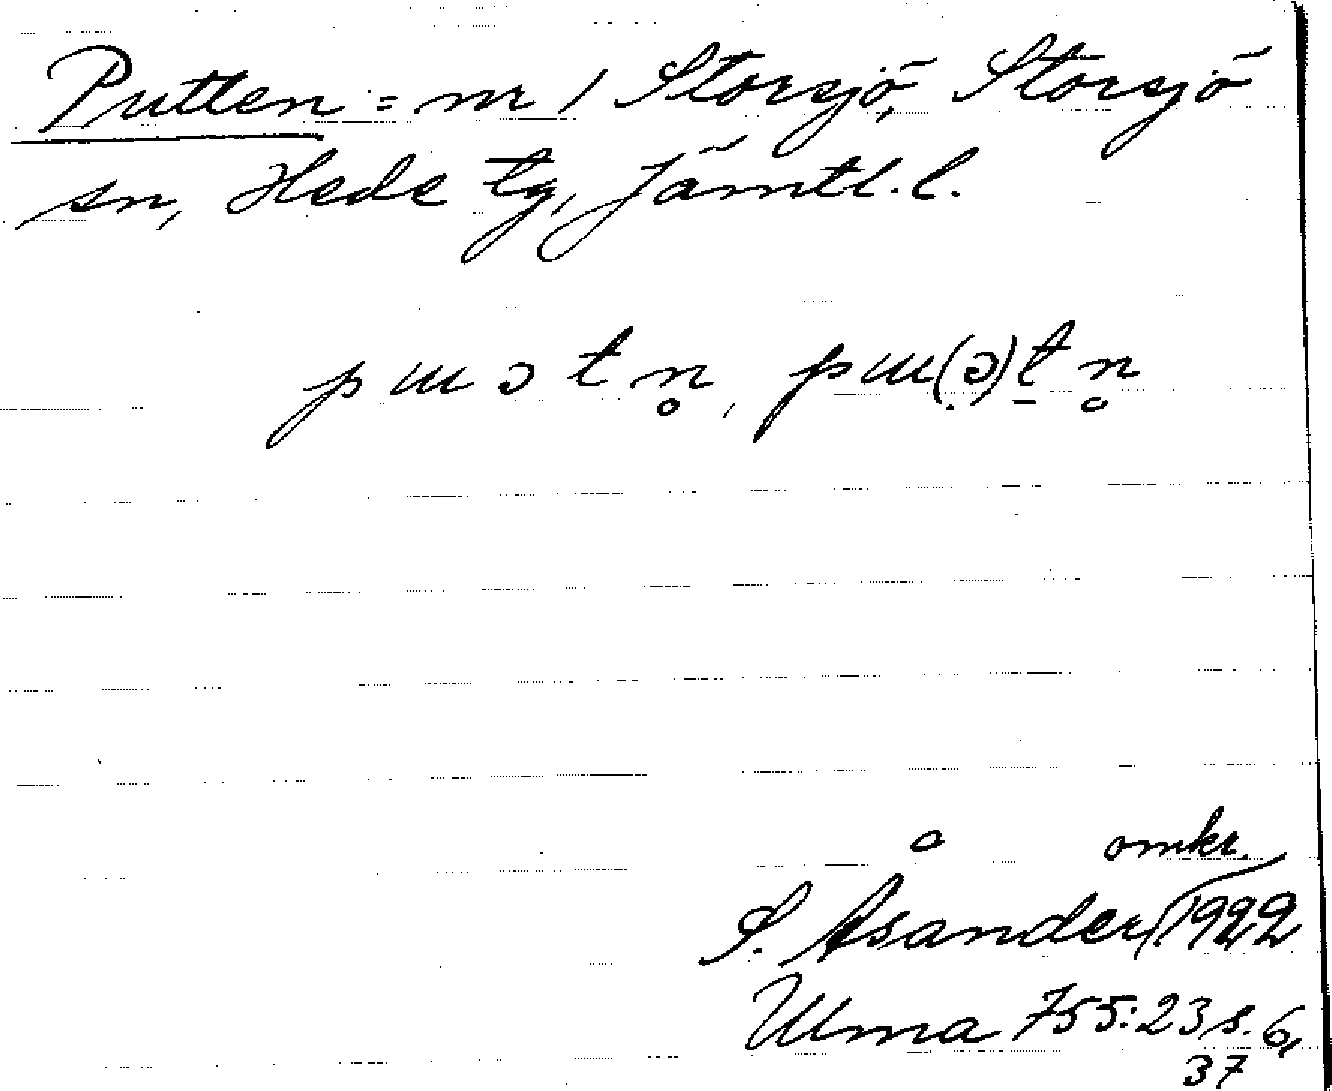 Putten = nr 1 Storsjö, Storsjö
sn, Hede tg, Jämtl. l.
pɯɔtn̥, pɯ(ɔ̣)t̠n̥
omkr.
S. Åsander 1922
Ulma 755:23 s. 6,
37